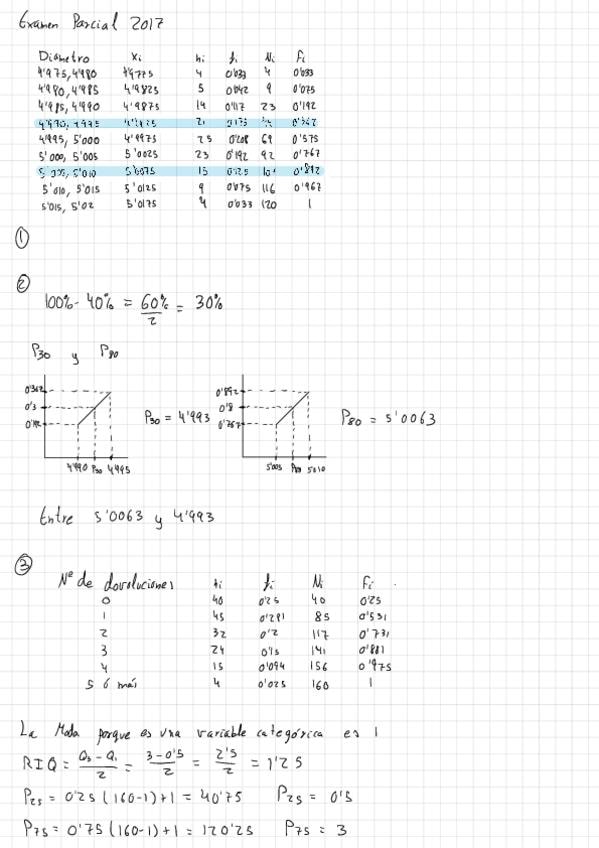 Examen Parcial 2017
Diámetro xi ni fi Ni Fi
4'975, 4'980 4'9775 4 0'033 4 0'033
4'980, 4'985 4'9825 5 0'042 9 0'075
4'985, 4'990 4'9875 14 0'117 23 0'192
4'990, 4'995 21 0'175
4'995, 5'000 4'9975 25 0'208 69 0'575
5'000, 5'005 5'0025 23 0'192 92 0'767
5'005, 5'010 5'0075 15 0'125 107 0'892
5'010, 5'015 5'0125 9 0'075 116 0'967
5'015, 5'02 5'0175 4 0'033 120 1
①
②
100% - 40% = 60%/2 = 30%
P30 y P80
0'367
0'3
0'192
4'990 P30 4'995
P30 = 4'993
0'892
0'8
0'767
5'005 P80 5'010
P80 = 5'0063
Entre 5'0063 y 4'993
③
Nº de devoluciones ni fi Ni Fi
0 40 0'25 40 0'25
1 45 0'281 85 0'531
2 32 0'2 117 0'731
3 24 0'15 141 0'881
4 15 0'094 156 0'975
5 ó más 4 0'025 160 1
La Moda porque es una variable categórica es 1
RIQ = Q3 - Q1/2 = 3 - 0'5/2 = 2'5/2 = 1'25
P25 = 0'25 (160-1) + 1 = 40'75 P25 = 0'5
P75 = 0'75 (160-1) + 1 = 120'25 P75 = 3